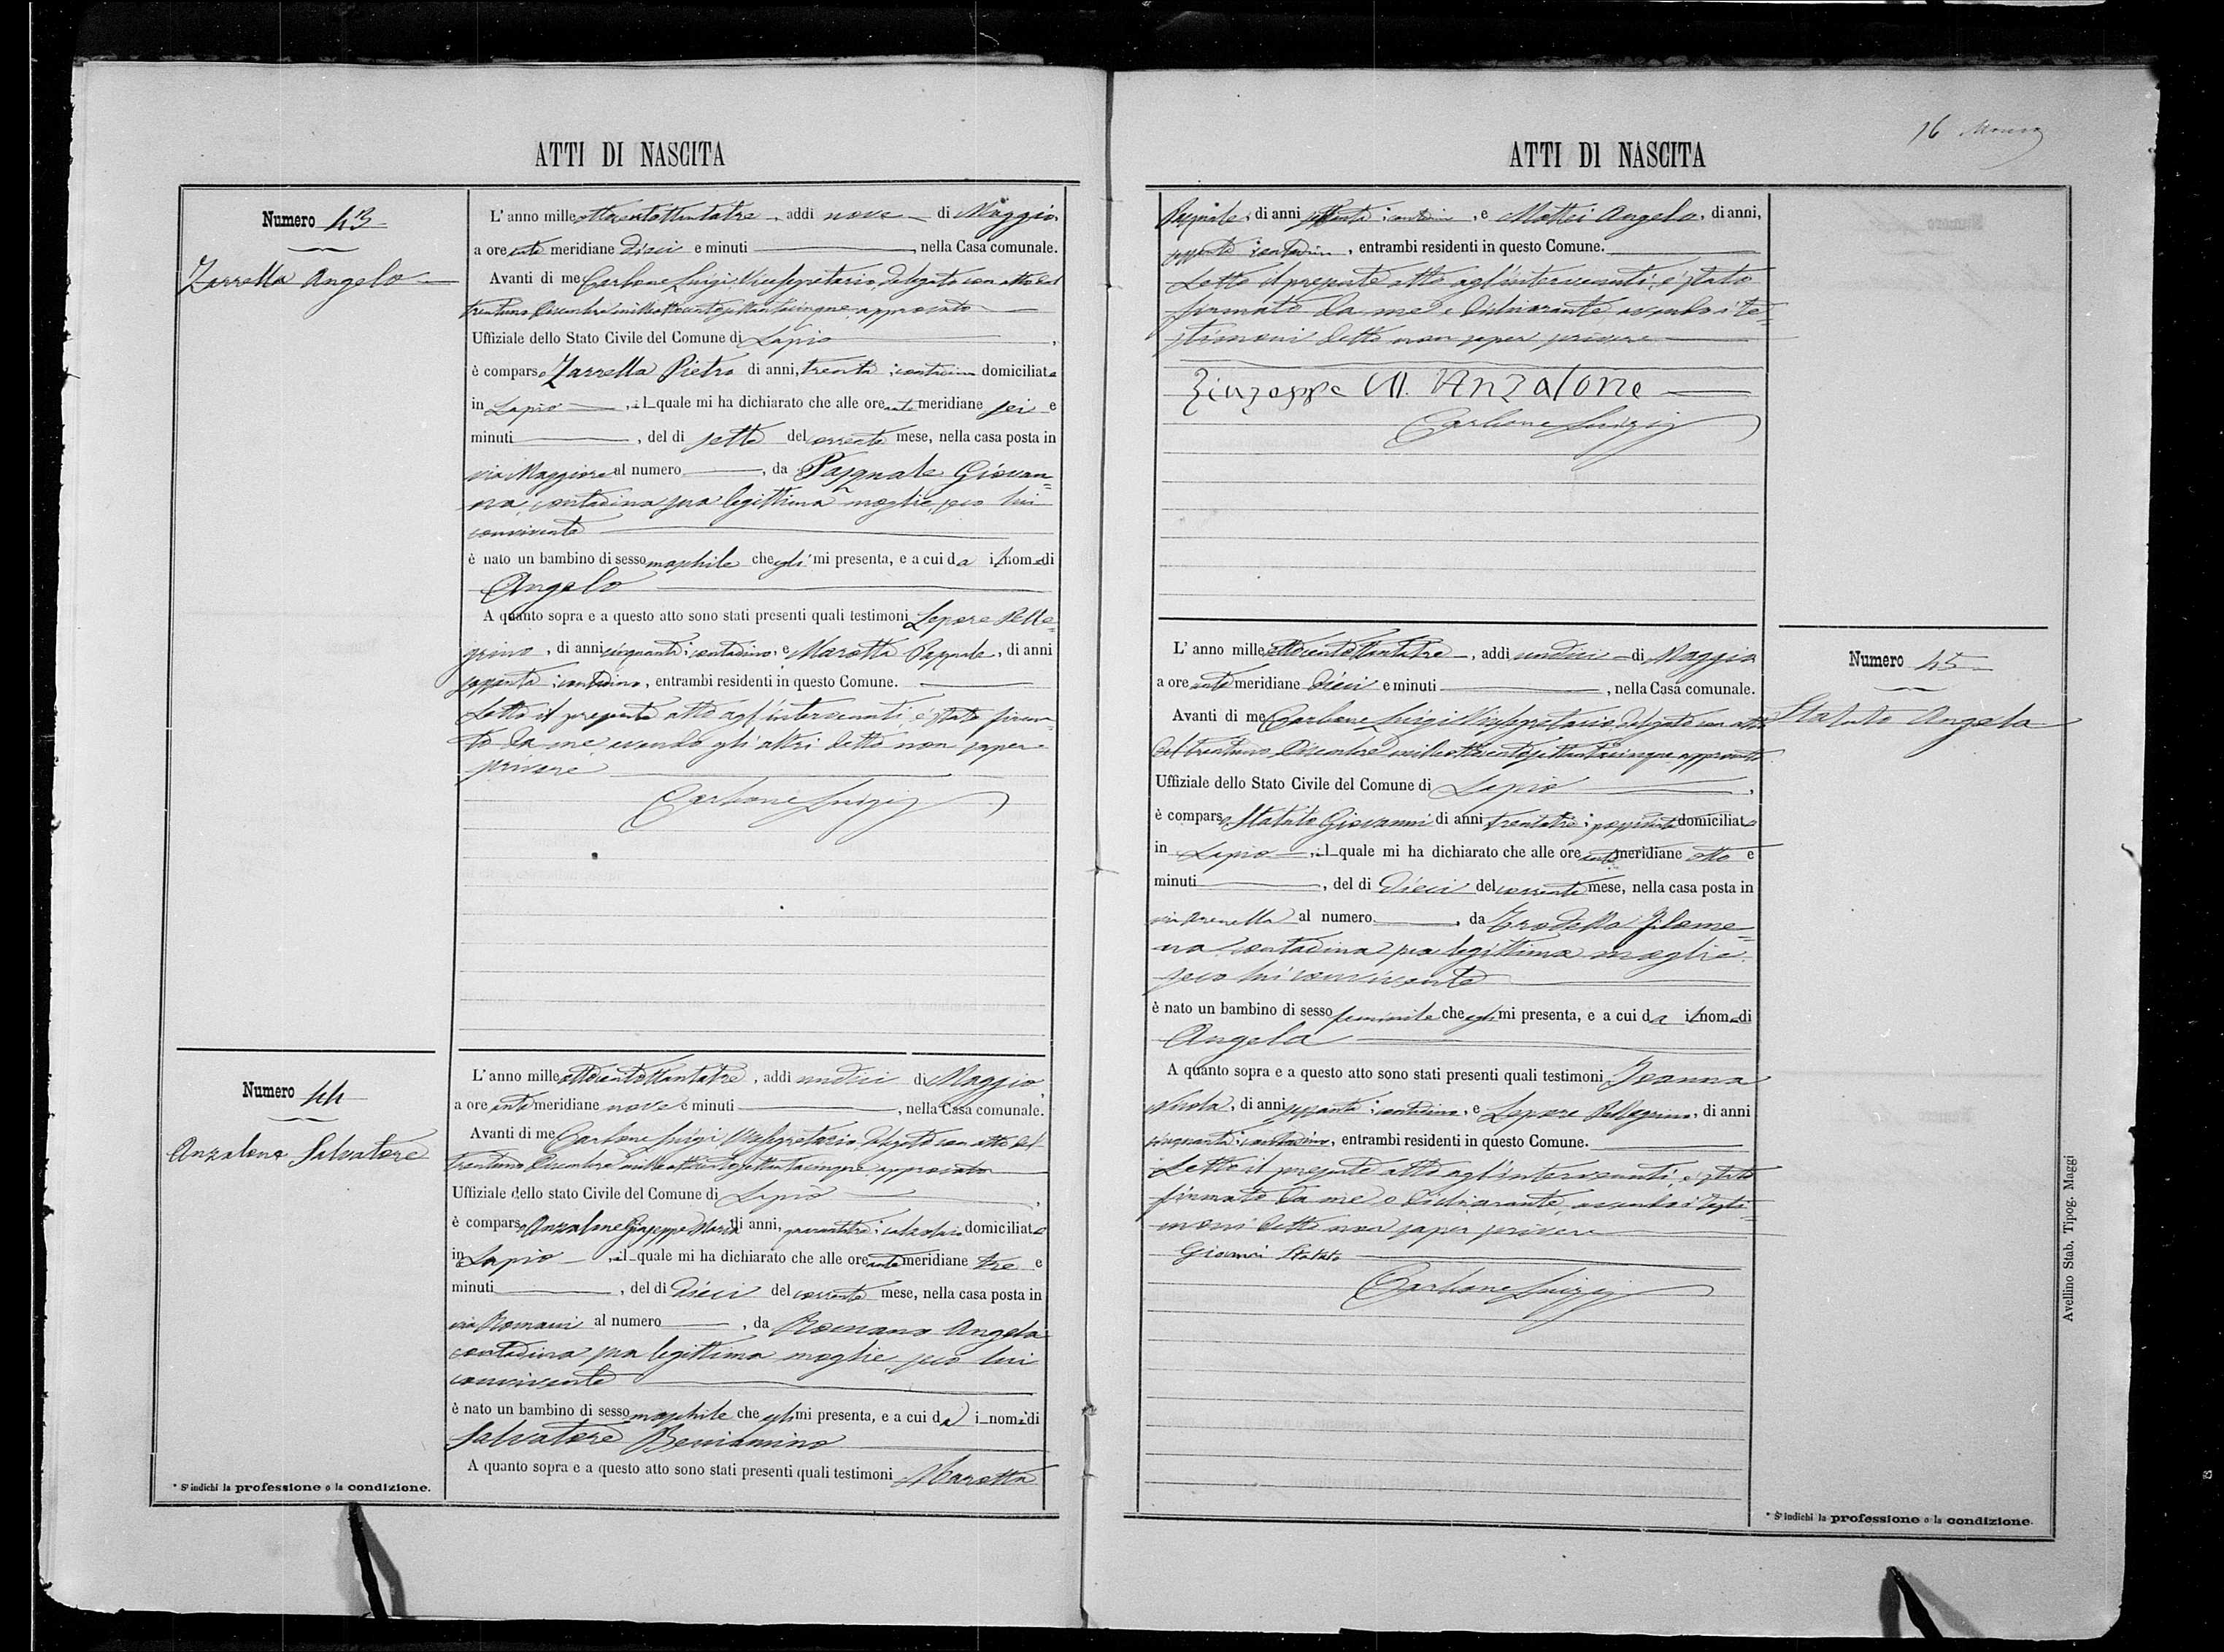 ATTI DI NASCITA
Numero 43
Zarrella Angelo
L'anno mille ottocentottantatre, addi nove di Maggio,
a ore ante meridiane dieci e minuti , nella Casa comunale.
Avanti di me Carbone Luigi Vicesegretario delegato con atto del
trentuno Dicembre mille ottocentosettantacinque approvato
Uffiziale dello Stato Civile del Comune di Lapio ,
è comparso Zarrella Pietro di anni, trenta, contadino domiciliato
in Lapio , il quale mi ha dichiarato che alle ore ante meridiane sei e
minuti , del di sette del corrente mese, nella casa posta in
via Maggiore al numero , da Pasquale Giovan=
na, contadina sua legittima moglie, seco lui
convivente
è nato un bambino di sesso maschile che egli mi presenta, e a cui da il nome di
Angelo
A quanto sopra e a questo atto sono stati presenti quali testimoni Lepore Pelle=
grino, di anni cinquanta, contadino, e Marotta Pasquale, di anni
sessanta, contadino, entrambi residenti in questo Comune.
Letto il presente atto agl'intervenuti, è stato firma=
to da me, avendo gli altri detto non saper
scrivere
Carbone Luigi
Numero 44
Anzalone Salvatore
L'anno mille ottocentottantatre, addi undici di Maggio,
a ore ante meridiane nove e minuti , nella Casa comunale.
Avanti di me Carbone Luigi Vicesegretario delegato con atto del
trentuno Dicembre mille ottocentosettantacinque approvato
Uffiziale dello stato Civile del Comune di Lapio ,
è comparso Anzalone Giuseppe Maria di anni, quarantatre, calzolaio domiciliato
in Lapio , il quale mi ha dichiarato che alle ore ante meridiane tre e
minuti , del di dieci del corrente mese, nella casa posta in
via Romani al numero , da Romano Angela
contadina sua legittima moglie, seco lui
convivente
è nato un bambino di sesso maschile che egli mi presenta, e a cui da i nome di
Salvatore Beniamino
A quanto sopra e a questo atto sono stati presenti quali testimoni Marotta
* S'indichi la professione o la condizione.
16
ATTI DI NASCITA
Pasquale, di anni sessanta, contadino, e Mottei Angelo, di anni,
sessanta, contadino, entrambi residenti in questo Comune.
Letto il presente atto agl'intervenuti, è stato
firmato da me e dichiarante avendo i te=
stimoni detto non saper scrivere
Giuseppe M. Anzalone
Carbone Luigi
Numero 45
Statuto Angela
L'anno mille ottocentottantatre, addi undici di Maggio
a ore ante meridiane dieci e minuti , nella Casa comunale.
Avanti di me Carbone Luigi Vicesegretario delegato con atto
del trentuno Dicembre mille ottocentosettantacinque approvato
Uffiziale dello Stato Civile del Comune di Lapio ,
è comparso Statuto Giovanni di anni trentatre, possidente domiciliato
in Lapio , il quale mi ha dichiarato che alle ore ante meridiane otto e
minuti , del di dieci del corrente mese, nella casa posta in
via Arenella al numero , da Trodella Filome=
na contadina sua legittima moglie
seco lui convivente
è nato un bambino di sesso femminile che egli mi presenta, e a cui da il nome di
Angela
A quanto sopra e a questo atto sono stati presenti quali testimoni Joanna
Nicola, di anni sessanta, contadino, e Lepore Pellegrino, di anni
cinquanta, contadino, entrambi residenti in questo Comune.
Letto il presente atto agl'intervenuti, è stato
firmato da me e dichiarante avendo i testi=
moni detto non saper scrivere
Giovanni Statuto
Carbone Luigi
* S'indichi la professione o la condizione.
Avellino Stab. Tipog. Maggi